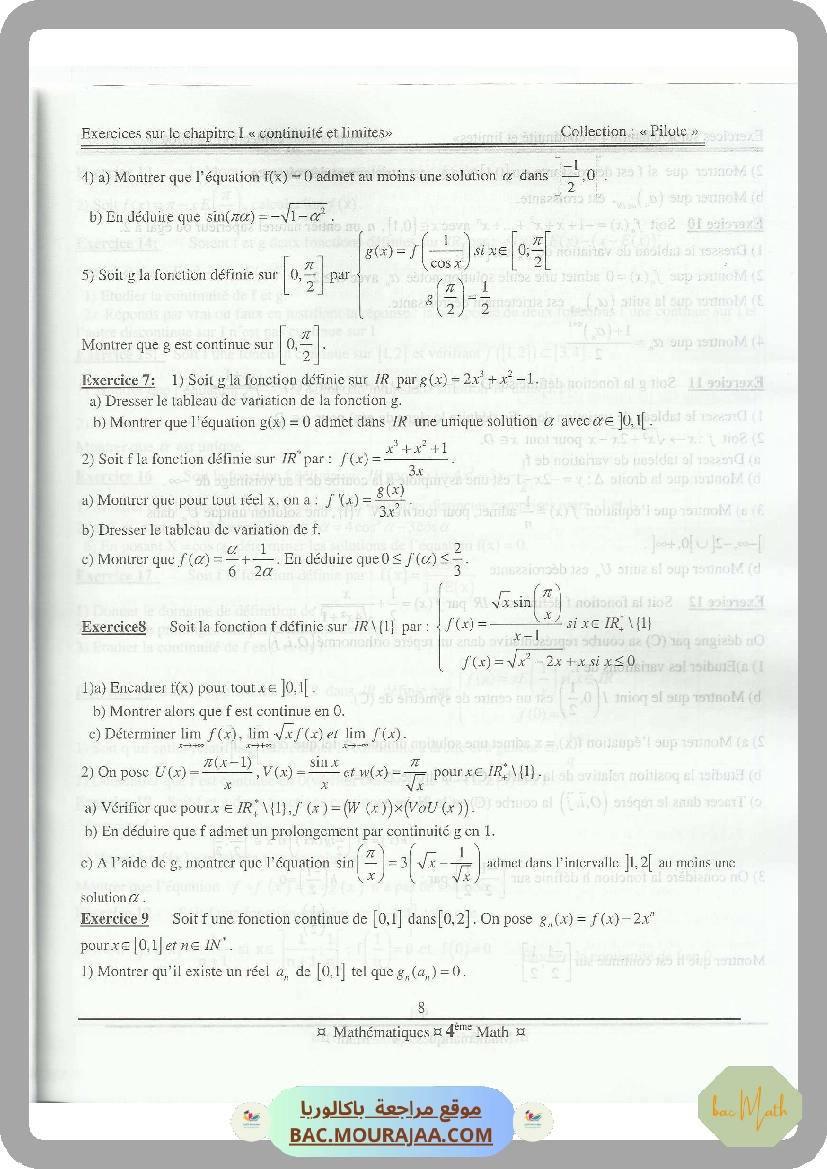 Exercices sur le chapitre I « continuité et limites» Collection : « Pilote »
4) a) Montrer que l'équation f(x) = 0 admet au moins une solution α dans ]-1/2, 0[ .
b) En déduire que sin(πα) = −√(1−α²) .
5) Soit g la fonction définie sur [0, π/2] par { g(x) = f(1/cos x) si x ∈ [0; π/2[
g(π/2) = 1/2
Montrer que g est continue sur [0, π/2] .
Exercice 7: 1) Soit g la fonction définie sur IR par g(x) = 2x³ + x² −1.
a) Dresser le tableau de variation de la fonction g.
b) Montrer que l'équation g(x) = 0 admet dans IR une unique solution α avec α ∈ ]0,1[ .
2) Soit f la fonction définie sur IR* par : f(x) = (x³ + x² + 1)/3x .
a) Montrer que pour tout réel x, on a : f '(x) = g(x)/3x² .
b) Dresser le tableau de variation de f.
c) Montrer que f(α) = α/6 + 1/2α . En déduire que 0 ≤ f(α) ≤ 2/3 .
Exercice8 Soit la fonction f définie sur IR \ {1} par : { f(x) = √x sin(π/x)/(x−1) si x ∈ IR*₊ \ {1}
f(x) = √(x² − 2x) + x si x ≤ 0
1)a) Encadrer f(x) pour tout x ∈ ]0,1[ .
b) Montrer alors que f est continue en 0.
c) Déterminer lim x→+∞ f(x), lim x→+∞ √x f(x) et lim x→−∞ f(x).
2) On pose U(x) = π(x−1)/x , V(x) = sin x/x et w(x) = π/√x pour x ∈ IR*₊ \ {1} .
a) Vérifier que pour x ∈ IR*₊ \ {1}, f(x) = (W(x))×(VoU(x)).
b) En déduire que f admet un prolongement par continuité g en 1.
c) A l'aide de g, montrer que l'équation sin(π/x) = 3(√x − 1/√x) admet dans l'intervalle ]1,2[ au moins une
solution α .
Exercice 9 Soit f une fonction continue de [0,1] dans [0,2] . On pose gₙ(x) = f(x) − 2xⁿ
pour x ∈ [0,1] et n ∈ IN* .
1) Montrer qu'il existe un réel aₙ de [0,1] tel que gₙ(aₙ) = 0 .
8
¤ Mathématiques ¤ 4ème Math ¤
موقع مراجعة باكالوريا
BAC.MOURAJAA.COM
bac Math